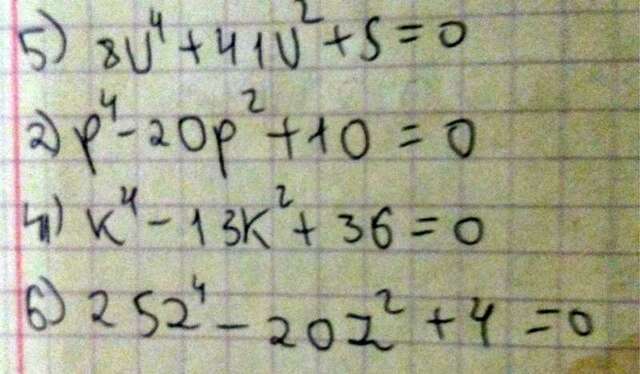 5) 8U⁴ + 41U² + 5 = 0
2) p⁴ - 20p² + 10 = 0
4) k⁴ - 13k² + 36 = 0
6) 25z⁴ - 20z² + 4 = 0